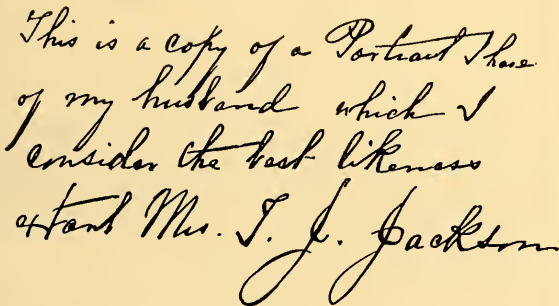 This is a copy of a Portrait I have
of my husband which I
consider the best likeness
extant Mrs. T. J. Jackson